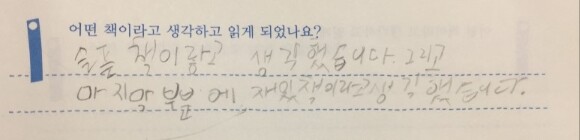 어떤 책이라고 생각하고 읽게 되었나요?
슬픈 책이람고 생각했습니다. 그리고
마지막 부분에 재밌 책이라고 생각했습니다.